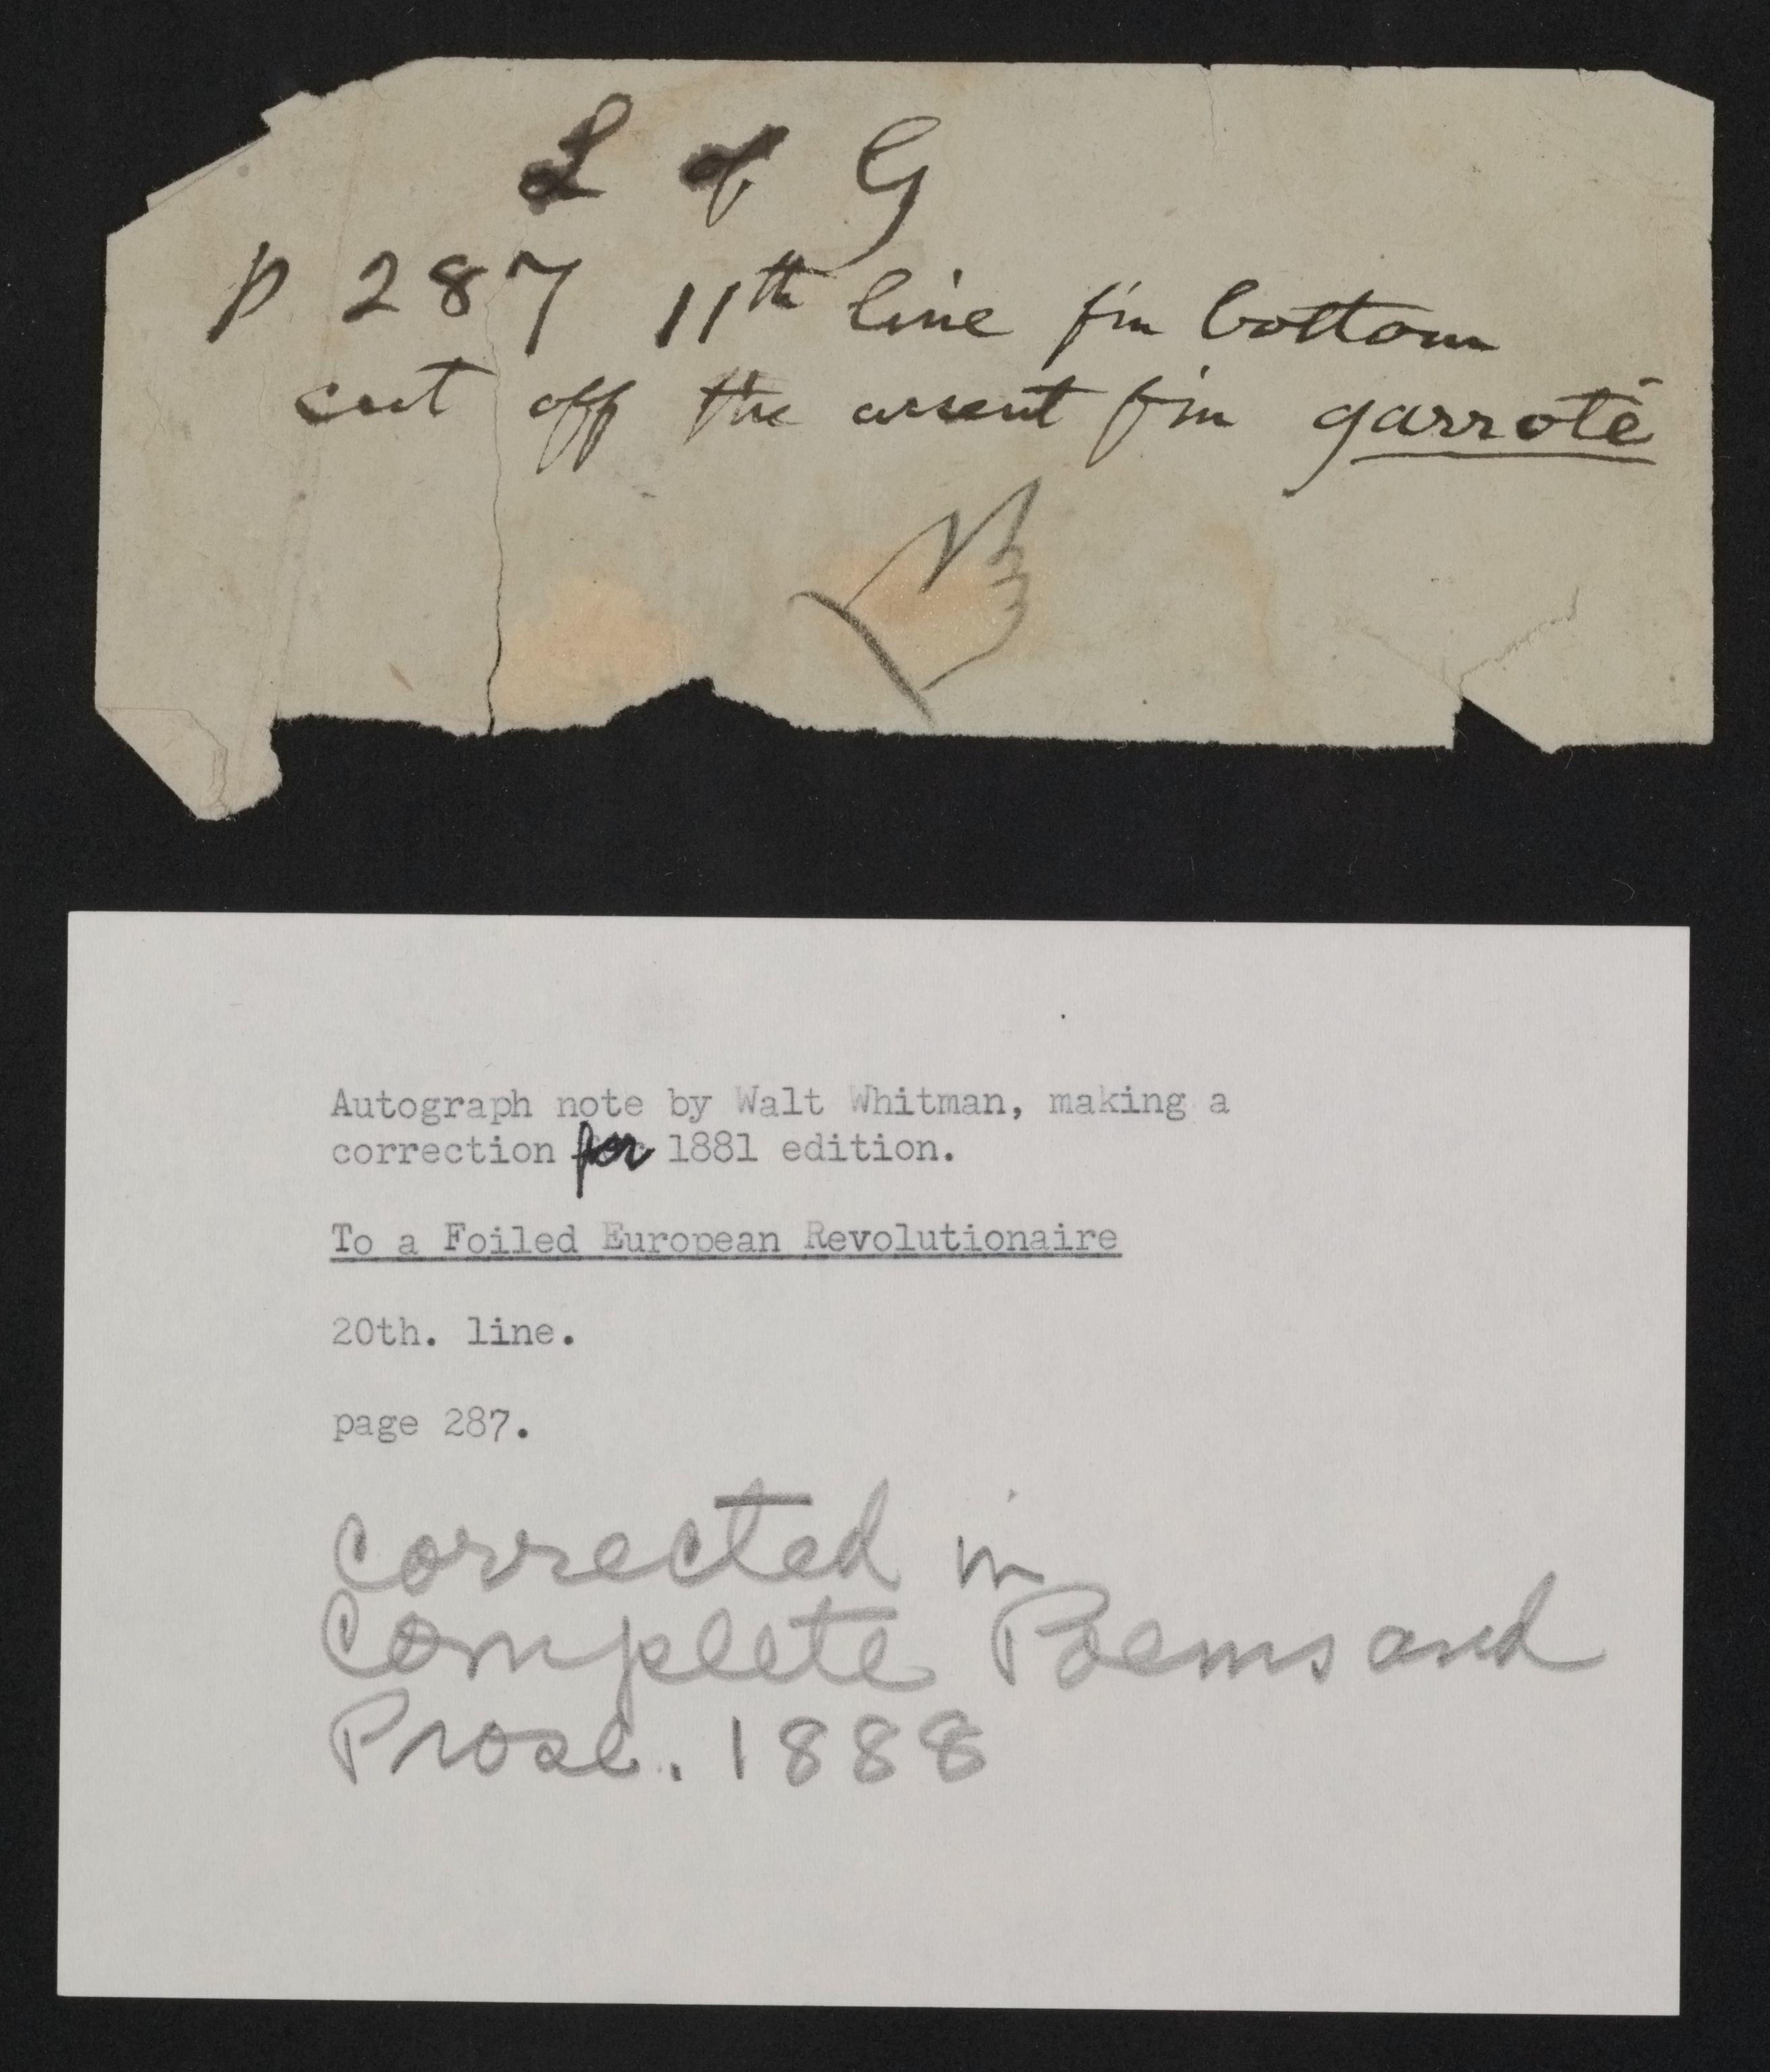 L of G
p 287 11th line fm bottom
cut off the accent fm garroté
Autograph note by Walt Whitman, making a
correction for 1881 edition.
To a Foiled European Revolutionaire
20th. line.
page 287.
corrected in
Complete Poems and
Prose. 1888